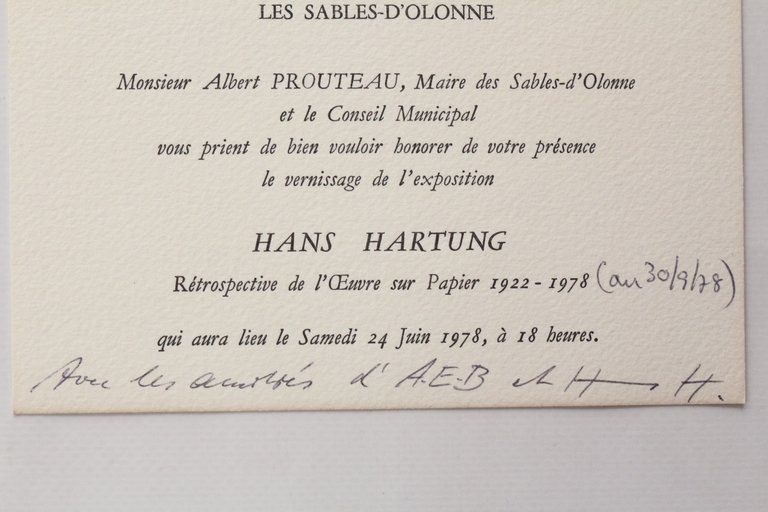 LES SABLES-D'OLONNE
Monsieur Albert PROUTEAU, Maire des Sables-d'Olonne
et le Conseil Municipal
vous prient de bien vouloir honorer de votre présence
le vernissage de l'exposition
HANS HARTUNG
Rétrospective de l'Œuvre sur Papier 1922 - 1978 (au 30/9/78)
qui aura lieu le Samedi 24 Juin 1978, à 18 heures.
Avec les amitiés d'A.E-B et H H.